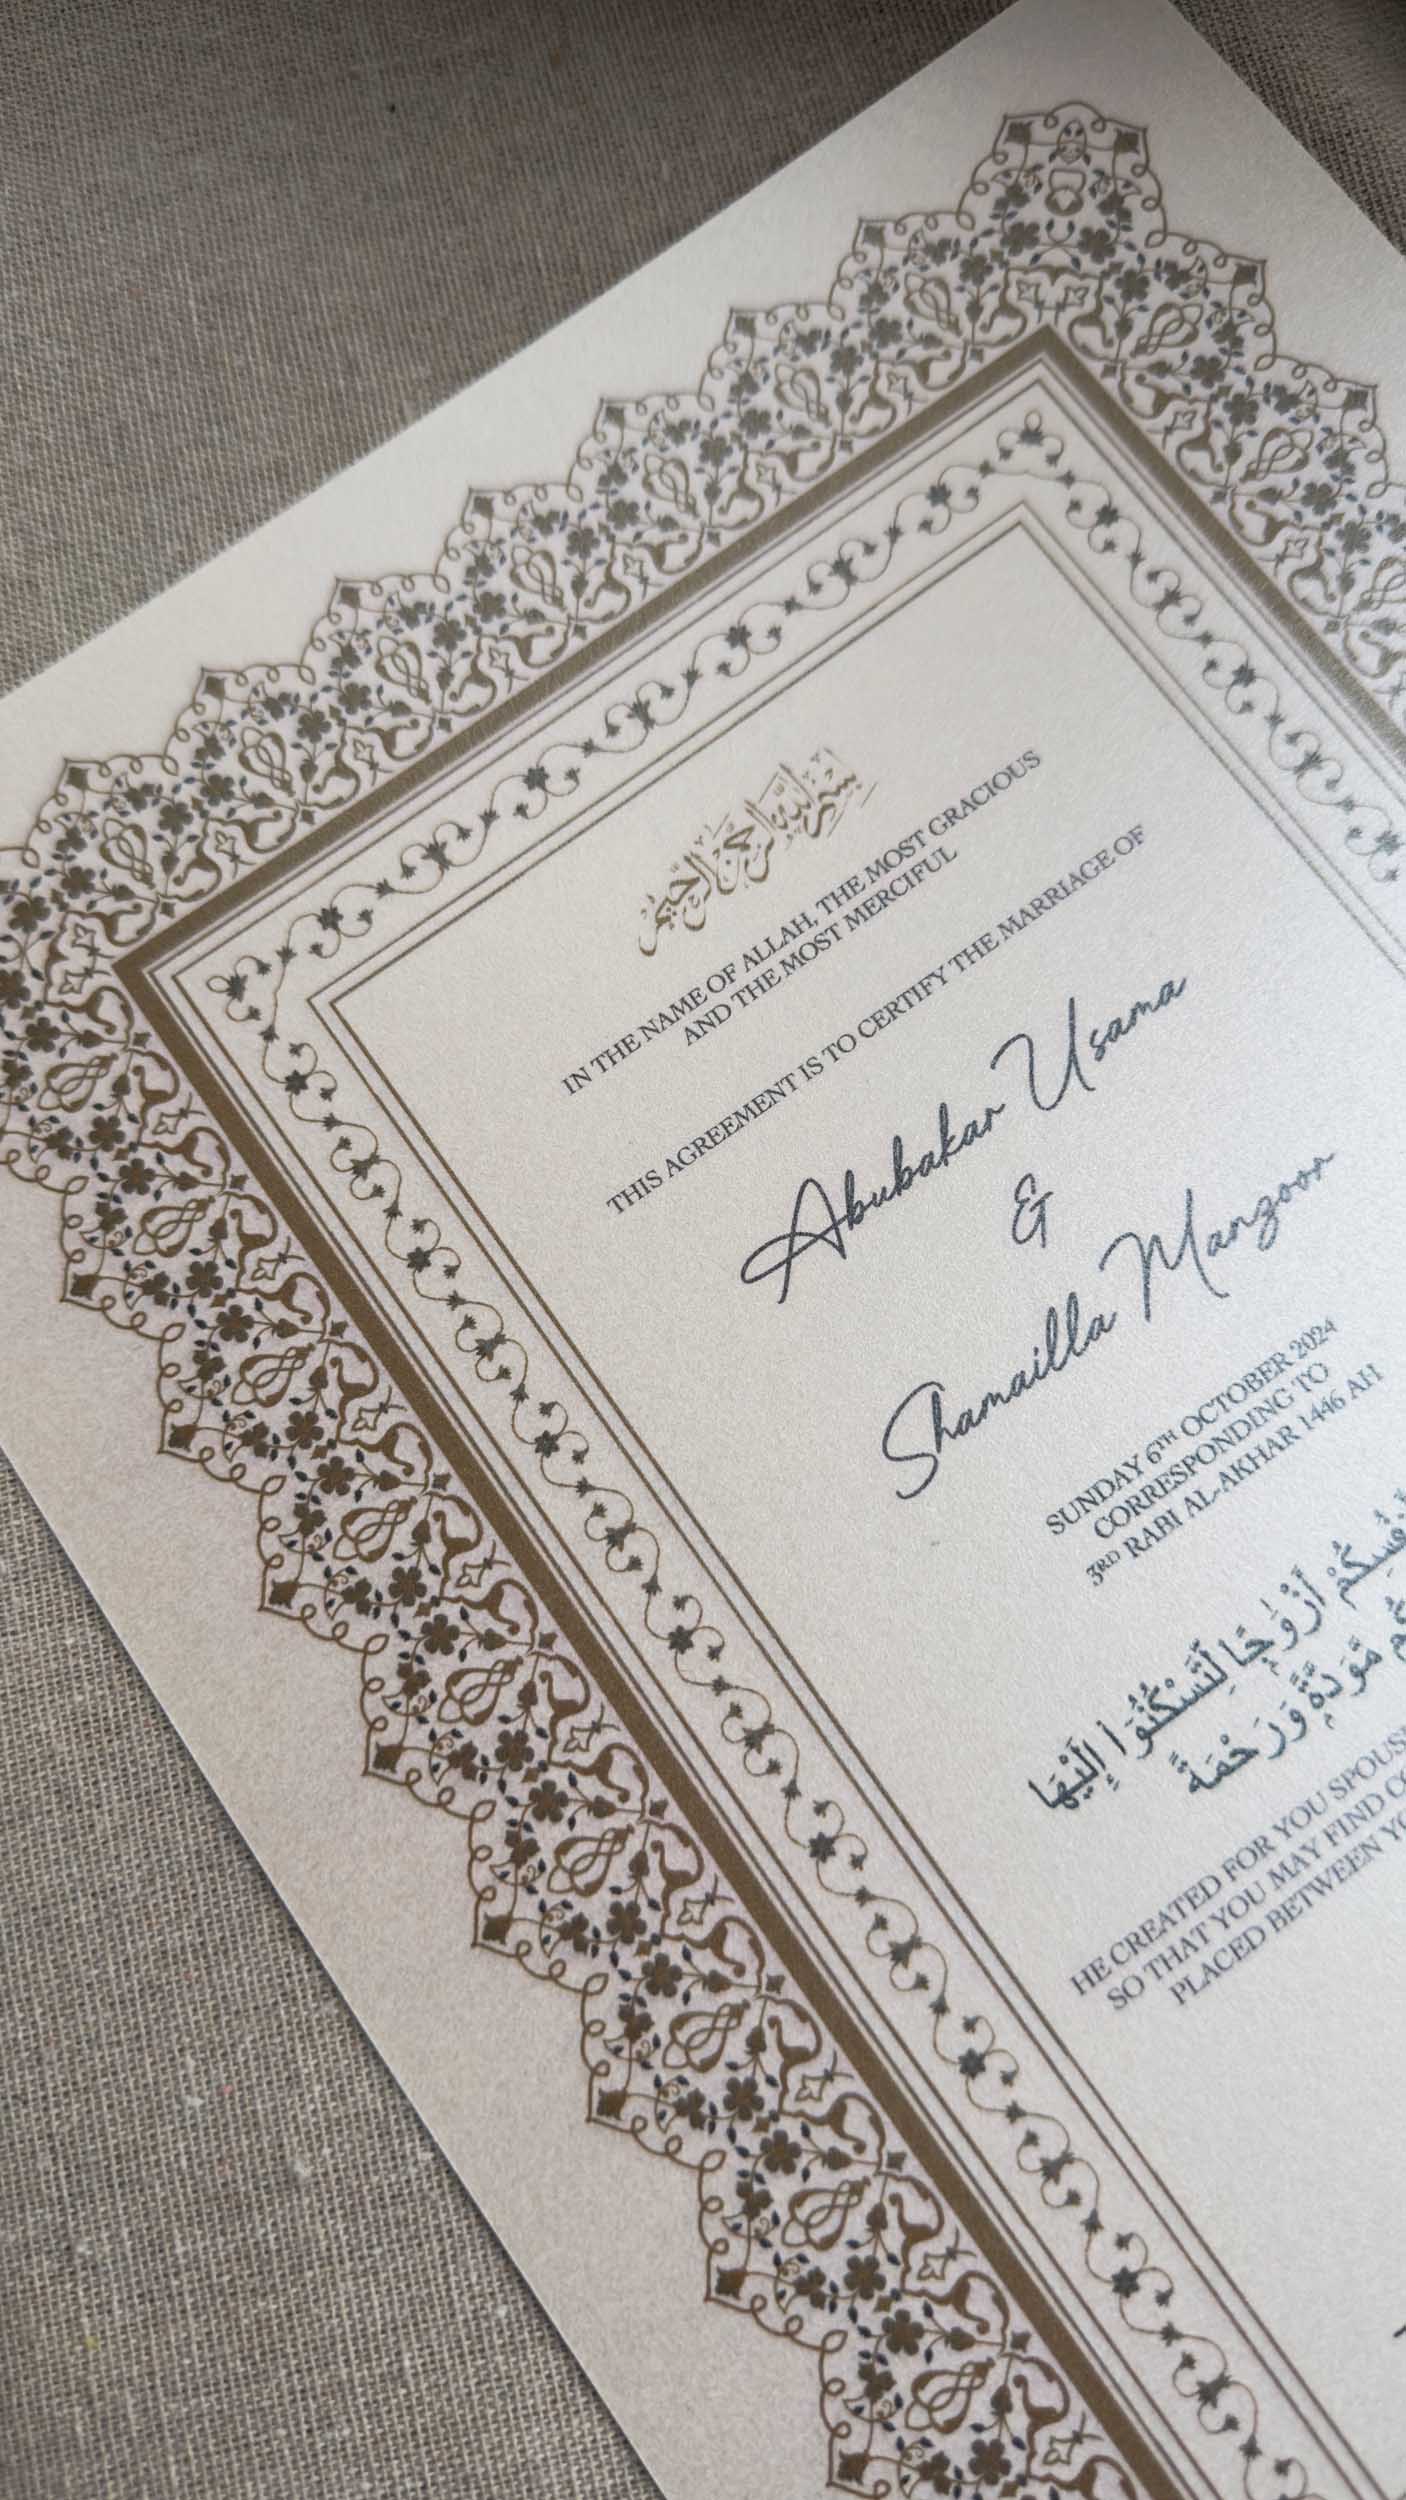 بسم الله الرحمن الرحيم
IN THE NAME OF ALLAH, THE MOST GRACIOUS
AND THE MOST MERCIFUL
THIS AGREEMENT IS TO CERTIFY THE MARRIAGE OF
Abubakar Usama
&
Shamailla Manzoor
SUNDAY 6TH OCTOBER 2024
CORRESPONDING TO
3RD RABI AL-AKHAR 1446 AH
أَزْوَٰجًا لِّتَسْكُنُوٓا۟ إِلَيْهَا
مَّوَدَّةً وَرَحْمَةً
HE CREATED FOR YOU SPOUS
SO THAT YOU MAY FIND
PLACED BETWEEN